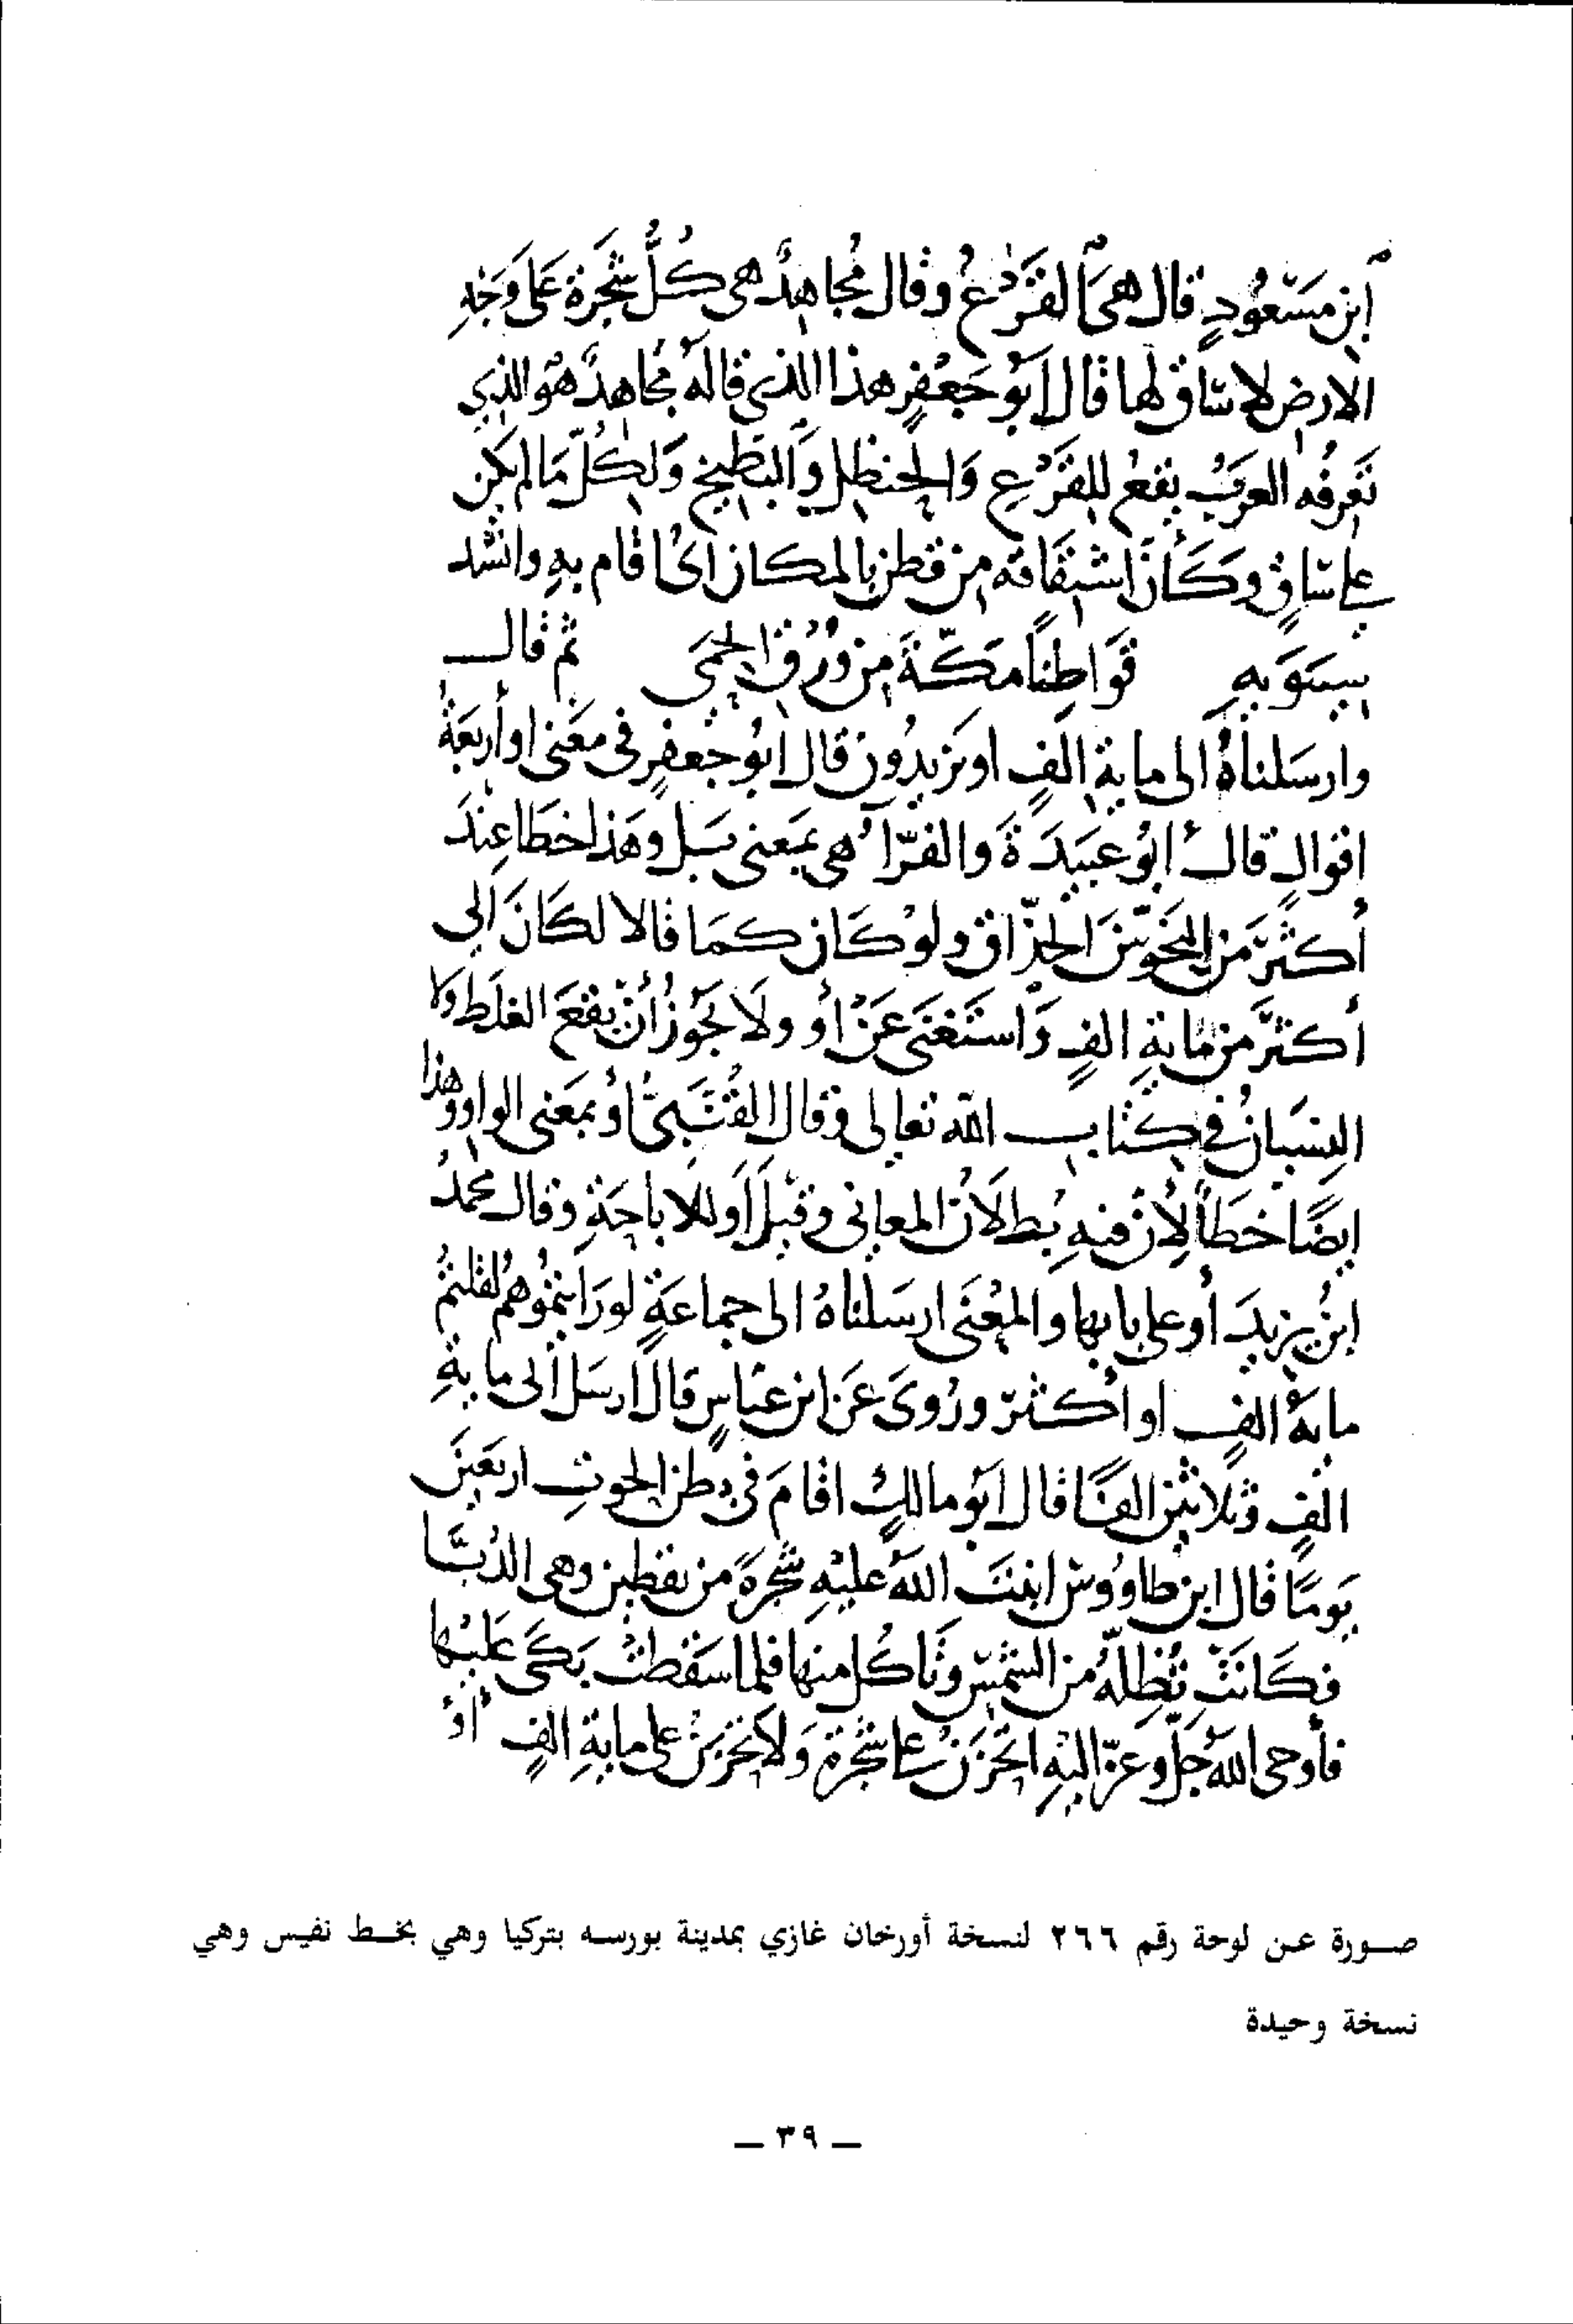 ابن مسعودٍ قال هى القَرْعُ وقال مُجاهِدٌ هى كُلُّ شَجَرة على وَجْهِ
الارض لا ساق لها قال ابو جَعْفرٍ هذا الذى قالهُ مجُاهدٌ هُوَ الذي
تَعرفُه العرَبُ يقعُ للقَرْعِ وَالحنظل والبَطيخ وَلِكُلّ مَا لم يكن
على سَاقٍ وَكأنَّ اشتقَاقه من قطن بالمكان اىْ اقام بهِ وانشد
سيبَويهِ قَواطِناً مكّةَ من وُرُقِ الحَمَى ثم قال
وارسَلناهُ الى مايةِ الفٍ او يَزيدُونَ قال ابو جَعفرٍ فى مَعْنى او أربعَةُ
اقوالٍ قال ابُو عبَيدَةَ والفرّآءُ هى بمَعنى بَل وهَذا خطَا عِندَ
أكثَرَ من النحَويّنَ الحذّاق ولوْ كان كمَا قالا لكَانَ الى
أكثَرَ من مايةِ الفٍ وَاستَغنَى عَنْ أوْ ولَا يجَوزُ أنْ يقعَ الغلَط ولا
النِسيَانُ في كتاب الله تعالى وقال القُتَبىُّ أوْ بمَعنى الواو وهذا
ايضًا خَطَأ لِأنّ فيهِ بُطلَانَ المعانى وقيل أوْ للاباحَةِ وقال محمدُ
ابنُ يزيدَ أو على بابها والمعْنَى ارسَلناهُ الى جماعَةٍ لو رَايتمُوهُم لقلتمْ
ماية الفٍ او اكثر ورُوىَ عَن ابن عبّاسٍ قال ارسَل الى مايةِ
الفٍ وثلاثين الفًا قال ابَو مالكٍ اقامَ فى بطن الحوت اربعَينَ
يَومًا قال ابن طاوُوس انبتَ اللهُ عليْهِ شجَرةً من يقطين وهى الدُّبَّا
فكَانَتْ تُظِلّهُ من الشمسِ وياكُل منها فلما سَقطتْ بَكَى عَليْها
فأوحى اللهُ جَلّ وعَزّ اليْهِ اتحْزَنُ على شجَرةٍ وَلَا تحْزَنُ على مايةِ الفٍ أوْ
صورة عن لوحة رقم ٢٦٦ لنسخة أورخان غازي بمدينة بورسه بتركيا وهي بخط نفيس وهي
نسخة وحيدة
— ٣٩ —